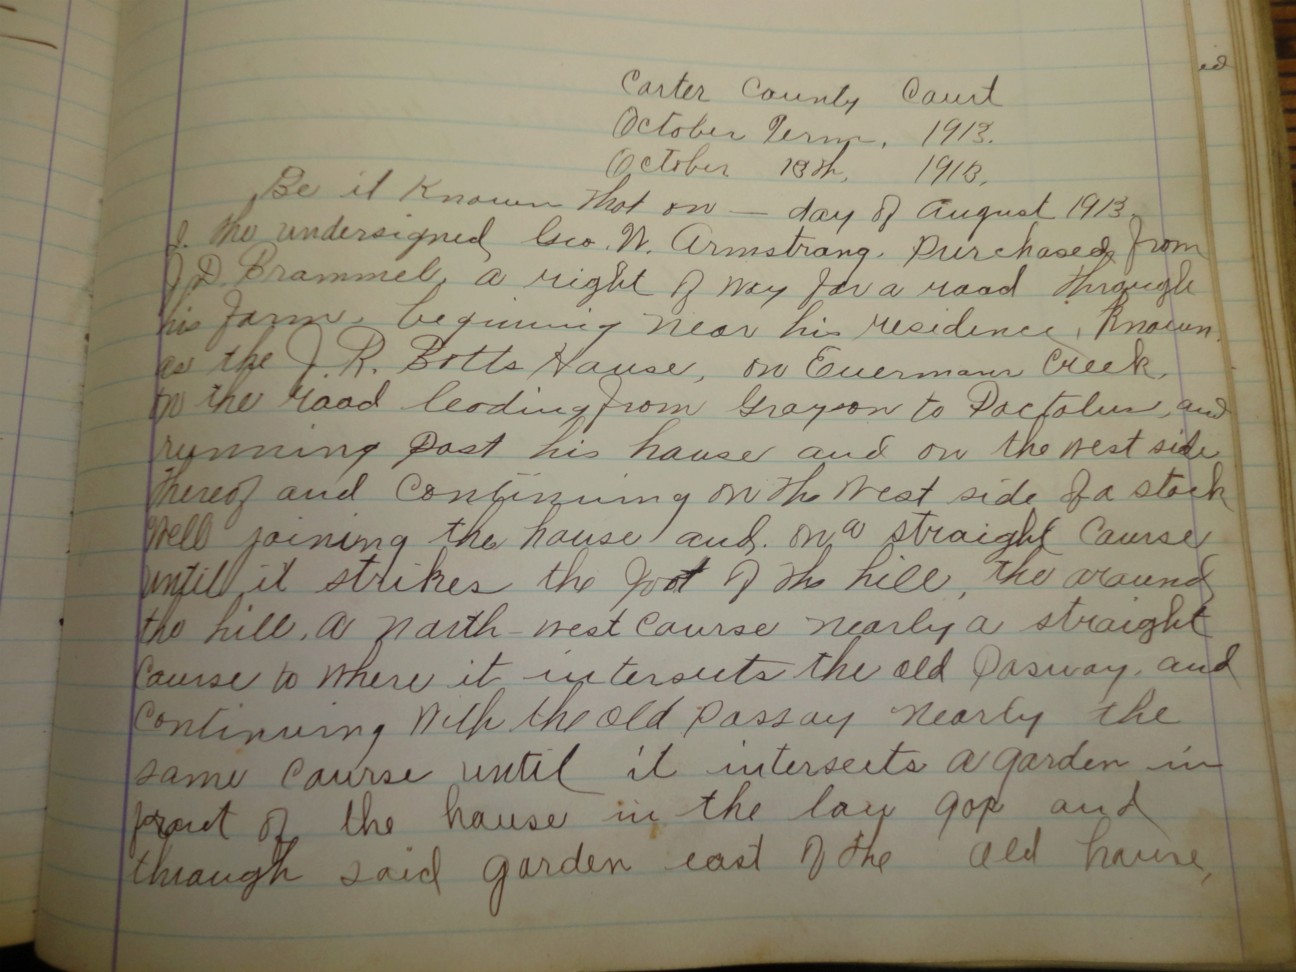 Carter County Court
October Term, 1913.
October 13th, 1913.
Be it Known that on — day of August 1913.
I. the undersigned Geo. W. Armstrong. purchased from
J. D. Brammel, a right of way for a road through
his farm, beginning near his residence, Known
as the J. R. Botts House, on Everman Creek,
on the road leading from Grayson to Pactolus, and
running past his house and on the west side
thereof and continuing on the west side of a stock
well joining the house and. on a straight course
until it strikes the foot of the hill, the around
the hill, a north-west course nearly a straight
course to where it intersects the old Pasway, and
continuing with the old passay nearly the
same course until it intersects a garden in
front of the house in the low gap and
through said garden east of the old house,
ed